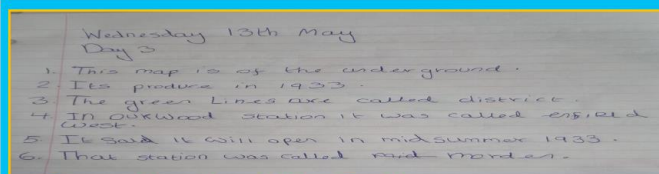 Wednesday 13th May
Day 3
1. This map is of the underground.
2. Its produce in 1933.
3. The green Lines are called district.
4 In Oukwood station it was called enfield
west.
5 It Said it will open in midsummer 1933.
6. That station was called morden.